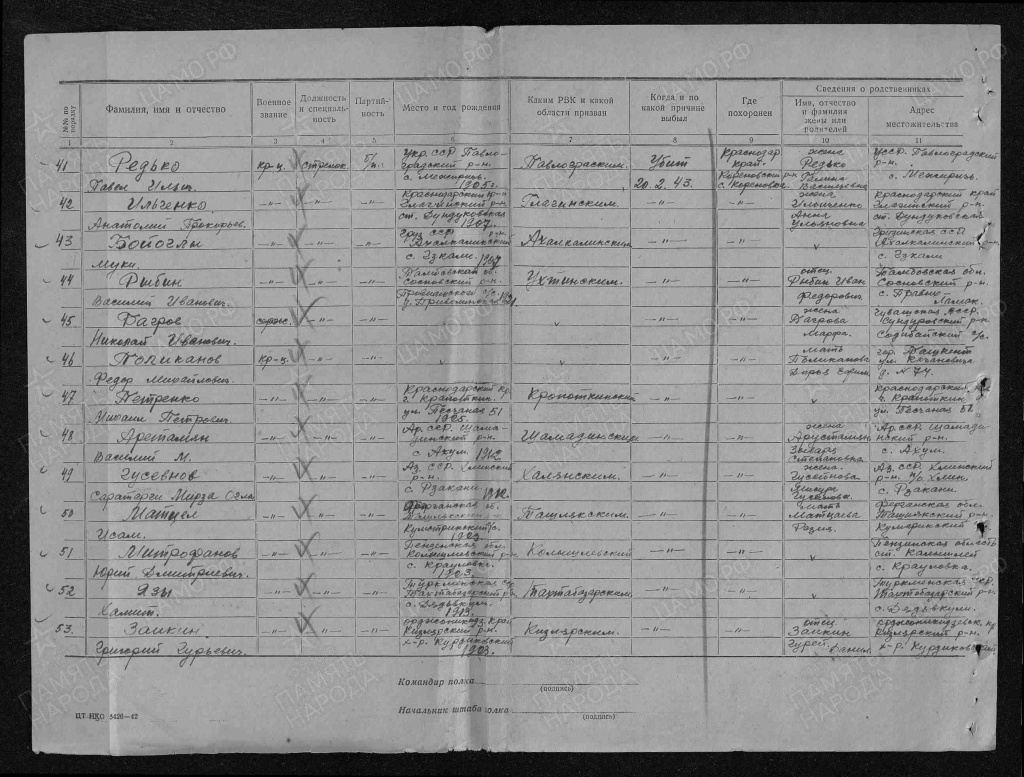 №№ по порядку
Фамилия, имя и отчество
Военное звание
Должность и специальность
Партийность
Место и год рождения
Каким РВК и какой области призван
Когда и по какой причине выбыл
Где похоронен
Сведения о родственниках
Имя, отчество и фамилия жены или родителей
Адрес местожительства
1 2 3 4 5 6 7 8 9 10 11
41 Редько Павел Ильич. кр-ц. стрелок. б/п. Укр. ССР Павлоградский р-н. с. Межиричь. 1905г. Павлоградским. Убит 20.2.43. Краснодар. край. Кореновский р-н с. Кореновск. жена Редько Галина Васильевна УССР. Павлоградский р-н. с. Межиричь.
42 Ильченко Анатолий Прокофьев. —"— —"— —"— Краснодарский край Гиагинский р-н ст. Дундуковская 1907. Гиагинским. —"— —"— жена Ильченко Анна Ульяновна Краснодарский край Гиагинский р-н ст. Дундуковская
43 Бойоглы Муки. —"— —"— —"— Груз ССР Ахалкалинский р-н. с. Гзкали. 1907 Ахалкалинским —"— —"— v Грузинская ССР Ахалкалинский р-н. с. Гзкали
44 Рыбин Василий Иванович. —"— —"— —"— Тамбовская об. Сосновский р-н. Ухтинским. —"— —"— отец. Рыбин Иван Федорович. Тамбовская обл. Сосновский р-н.
45. Багров Николай Иванович. сержс. —"— —"— v v —"— —"— жена Багрова Марфа. Чувашская АССР. Сундуровский р-н
46 Поликанов Федор Михайлович. кр-ц. —"— —"— v v —"— —"— мать Поликанова Дарья Ефим. гор. Ташкент д. N 74.
47 Петренко Михаил Петрович. —"— —"— —"— Краснодарский кр. г. Кропоткин. ул. Песчаная 51 1925. Кропоткинским —"— —"— v Краснодарский к. г. Кропоткин ул. Песчаная 51.
48 Аретамян Василий М. —"— —"— —"— Ар. ССР. Шамадинский р-н. с. Ахум. 1912 Шамадинским —"— —"— жена Арустамян Степановна Ар. ССР. Шамадинский р-н. с. Ахум.
49 Гусейнов Саратарги Мирза Оглы —"— —"— —"— Аз. ССР Хлинский р-н. с. Рзакани. 1912. —"— —"— жена. Гусейнова Аз. ССР Хлинский р-н. с. Рзакани.
50 Матцел Исам. —"— —"— —"— Ферганская об. Ташлакским. —"— —"— мать Матцаева Ферганская обл. Ташлакский р-н.
51 Митрофанов Юрий Дмитриевич. —"— —"— —"— Пензенская обл. Колышлейский р-н. с. Крауловка. 1903. Колышлейский —"— —"— v Пензинская область ст. Калышлей с. Крауловка.
52 Язы Хамит. —"— —"— —"— Туркменская сср Тахтабазарский р-н 1913. Тахтабазарским. —"— —"— v Туркменская сср. Тахтабазарский р-н.
53. Заикин Григорий Гурьевич. —"— —"— —"— орджоникидз. край Кизлярский р-н. х-р. Курдюковский 1903. Кизлярским. —"— —"— отец. Заикин Гурей Данил. орджоникидзевск. кр Кизлярский р-н. х-р. Курдюковский
Командир полка
(подпись)
Начальник штаба полка
(подпись)
ЦТ НКО 3426—42
ПАМЯТЬ НАРОДА
ЦАМО.РФ